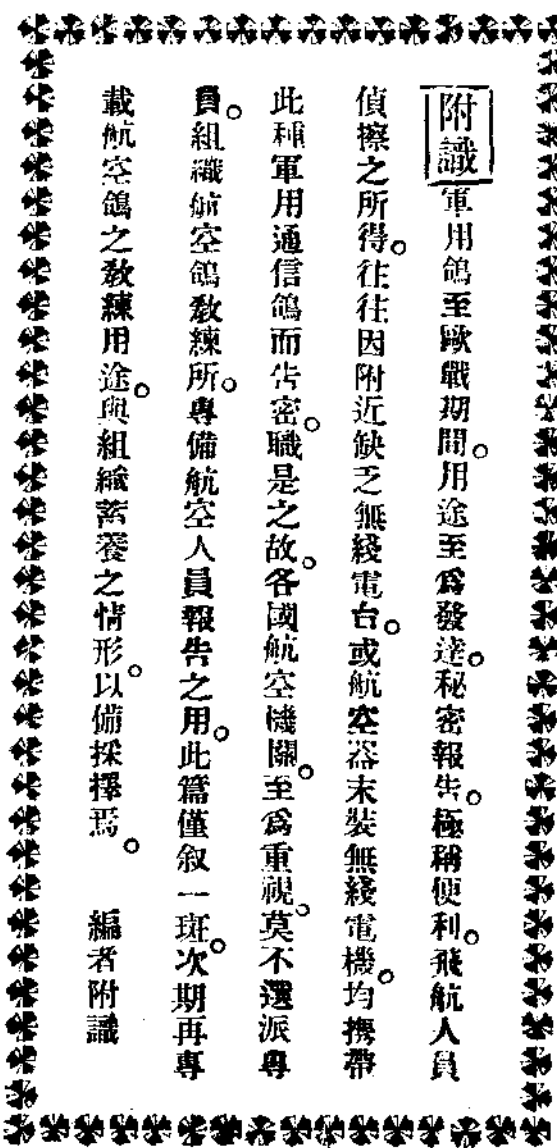 附識軍用鴿至歐戰期間。用途至爲發達。秘密報告。極稱便利。飛航人員
偵擦之所得。往往因附近缺乏無綫電台。或航空器未裝無綫電機。均攜帶
此種軍用通信鴿而告密。職是之故。各國航空機關。至爲重視。莫不選派專
員。組織航空鴿敎練所。專備航空人員報告之用。此篇僅叙一斑。次期再專
載航空鴿之敎練用途。與組織蓄養之情形。以備採擇焉。 編者附識